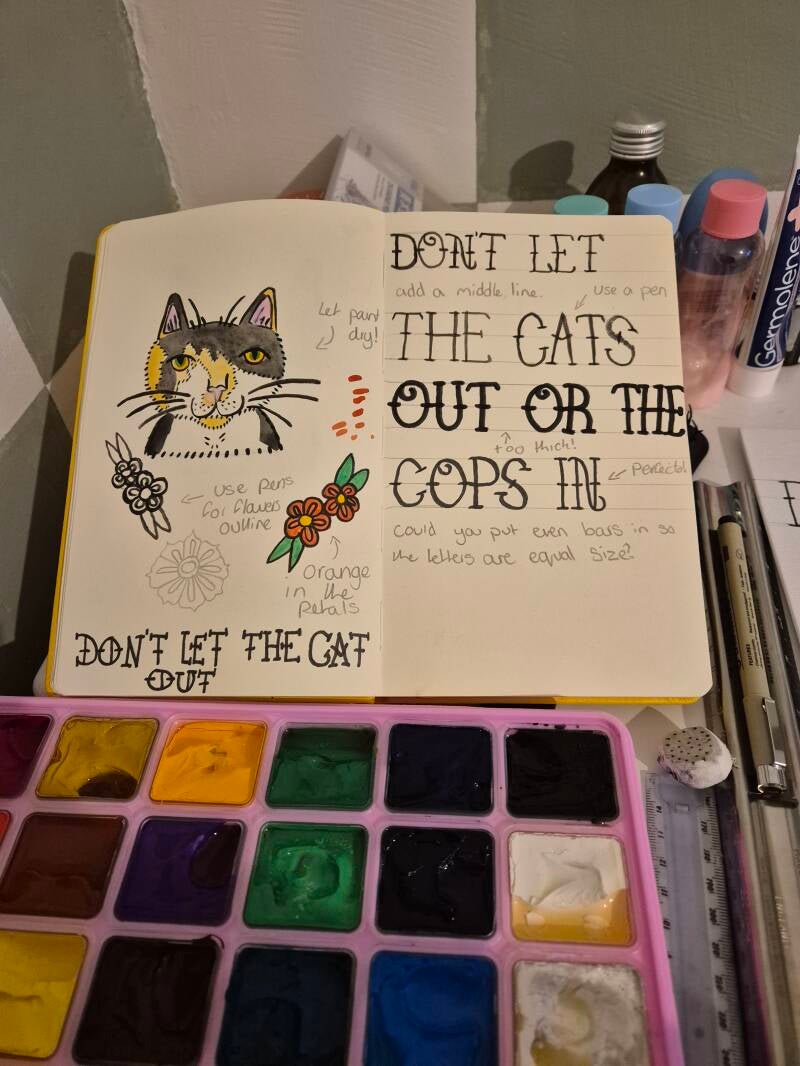 Let paint
dry!
use pens
for flowers
outline
Orange
in the
Petals
DON'T LET THE CAT
OUT
DON'T LET
add a middle line.
use a pen
THE CATS
OUT OR THE
too thick!
COPS IN
Perfecto!
Could you put even bars in so
the letters are equal size?
Germolene